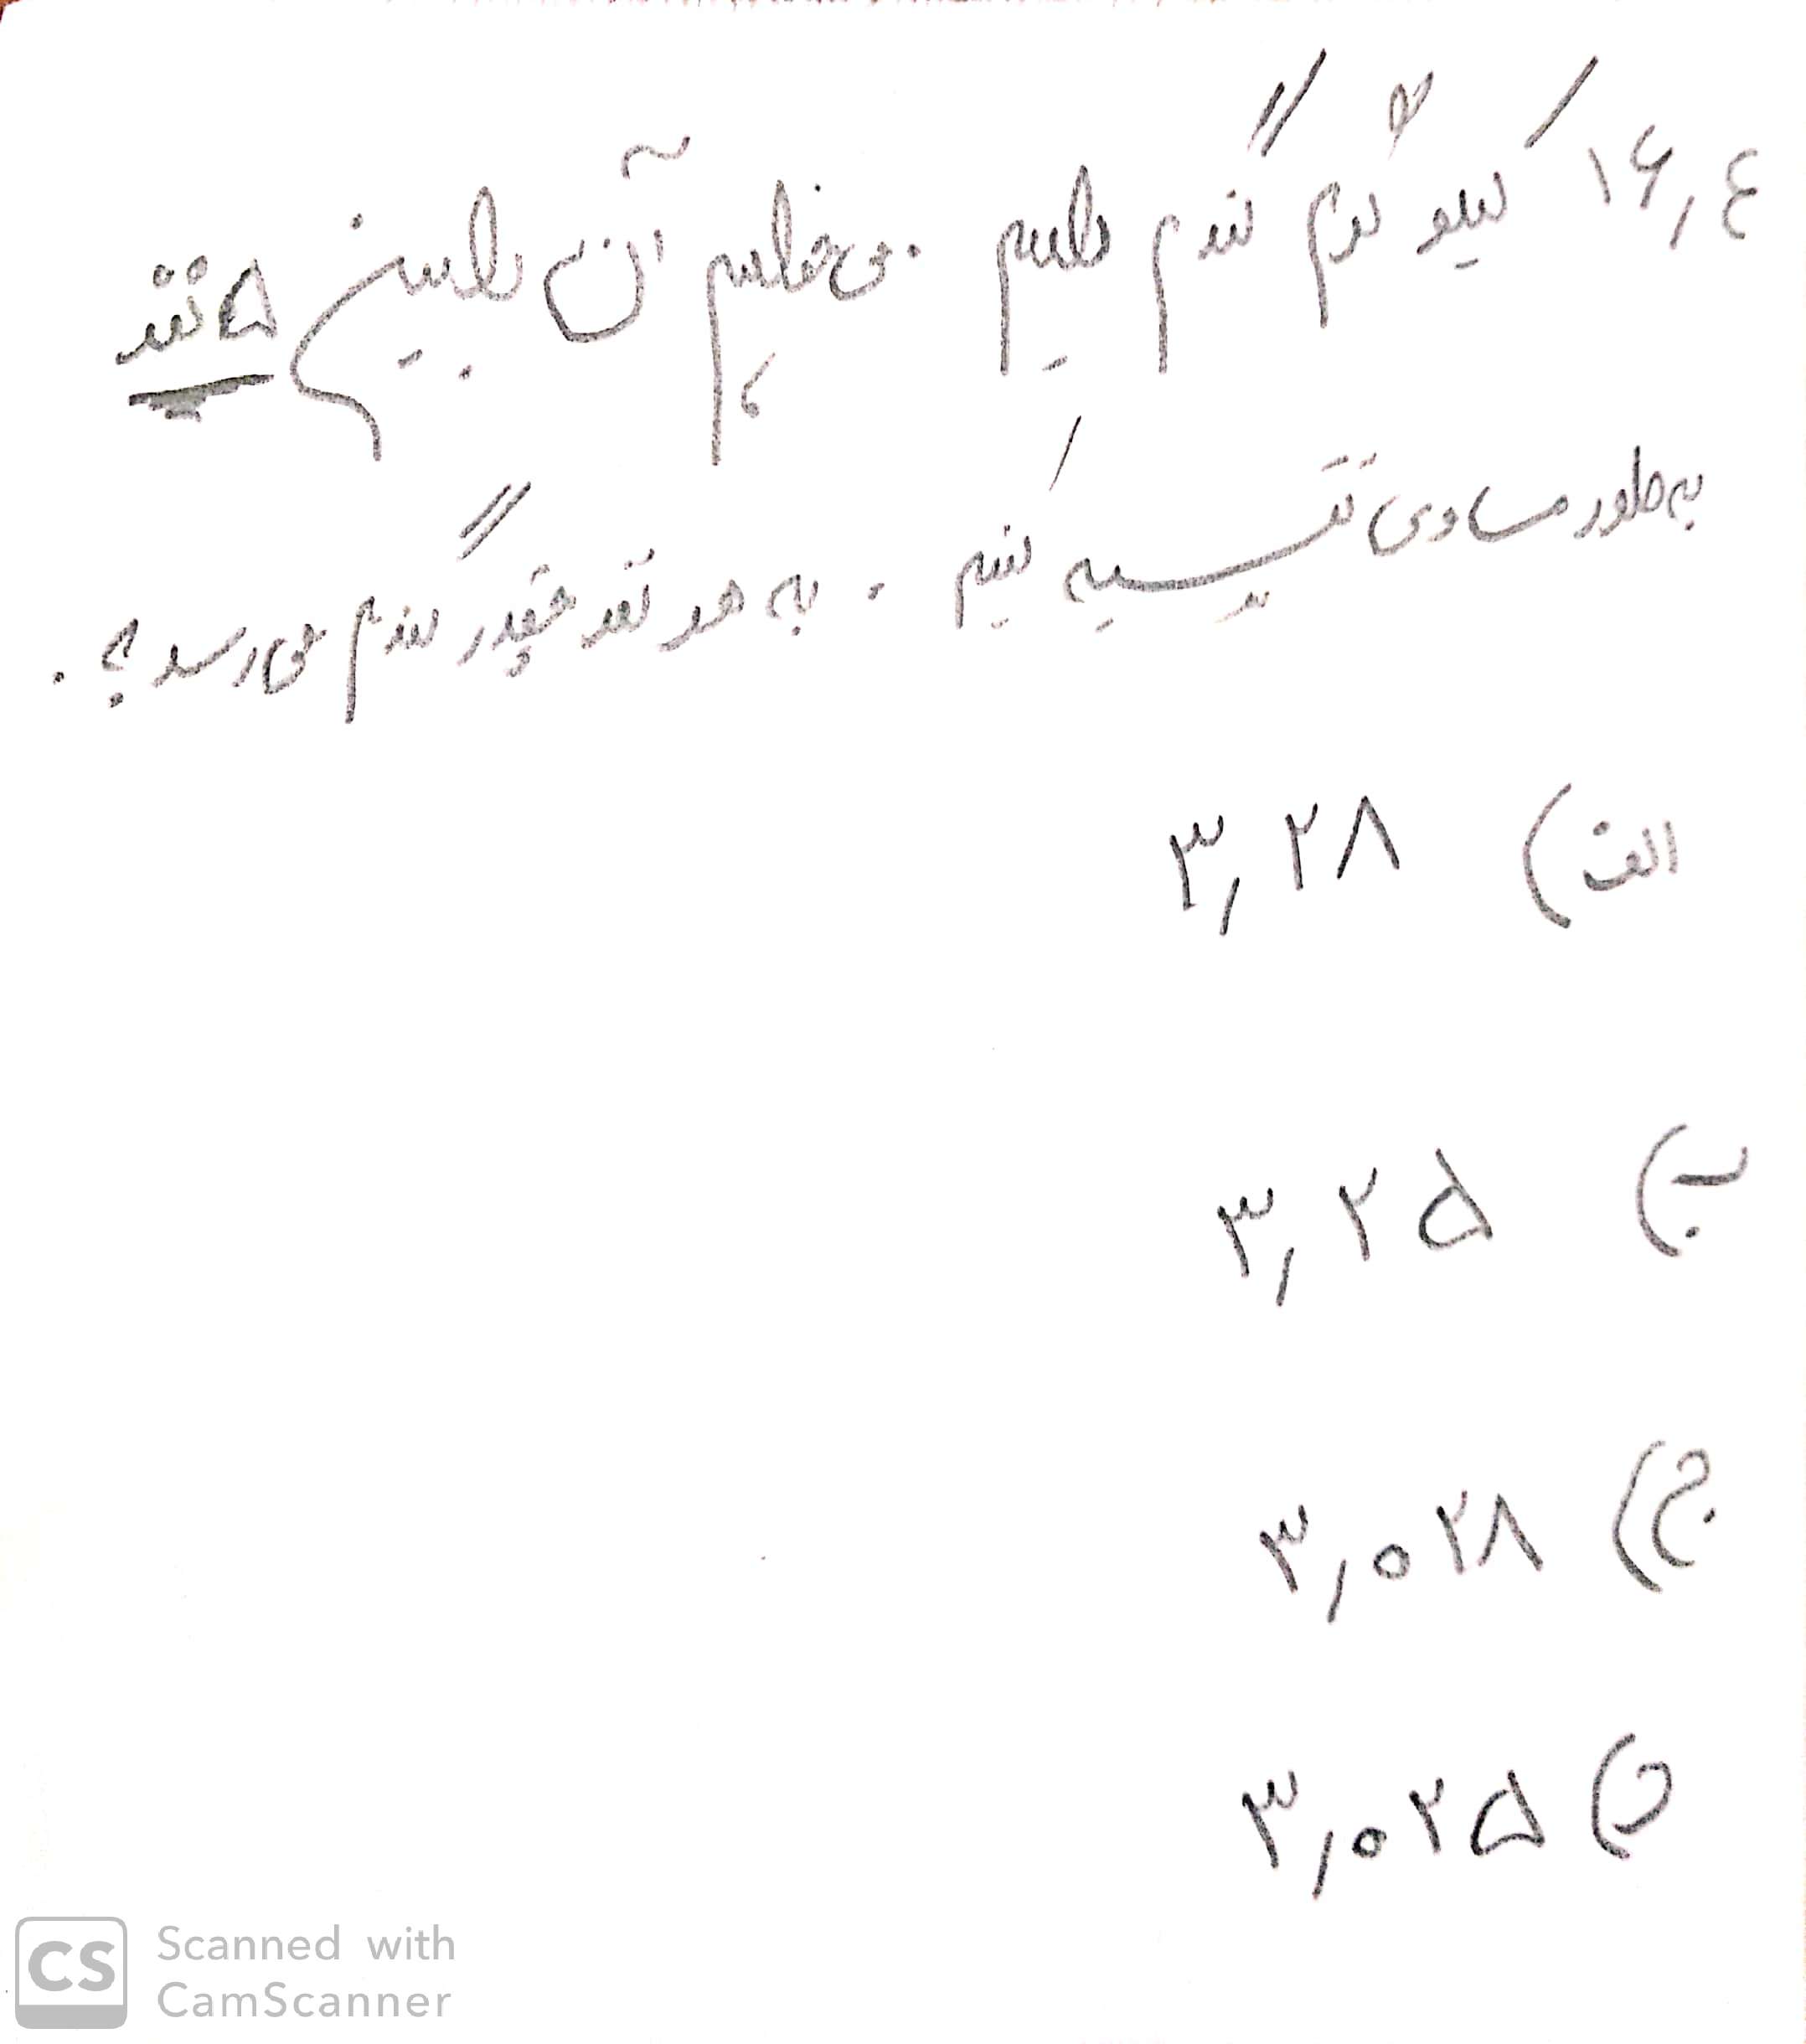 ۱۶٫۴ کیلو گرم گندم داریم . می‌خواهیم آن را بین ۵ نفر
به طور مساوی تقسیم کنیم . به هر نفر چقدر گندم می‌رسد؟ .
الف) ۳٫۲۸
ب) ۳٫۲۵
ج) ۳٫۰۲۸
د) ۳٫۰۲۵
Scanned with
CamScanner
CS